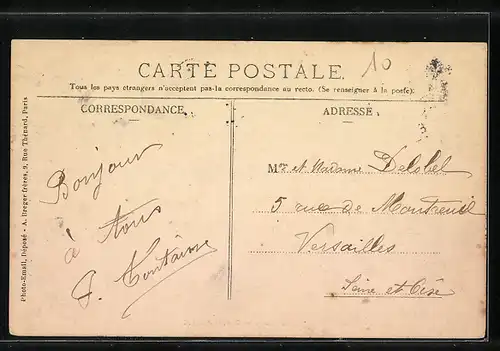 10
CARTE POSTALE.
Tous les pays étrangers n'acceptent pas la correspondance au recto. (Se renseigner à la poste).
CORRESPONDANCE
Bonjour
à tous
Photo-Email, Déposé - A. Breger frères, 9, Rue Thénard, Paris
ADRESSE
Mr et Madame Delobel
5 rue de Montreuil
Versailles
Seine et Oise